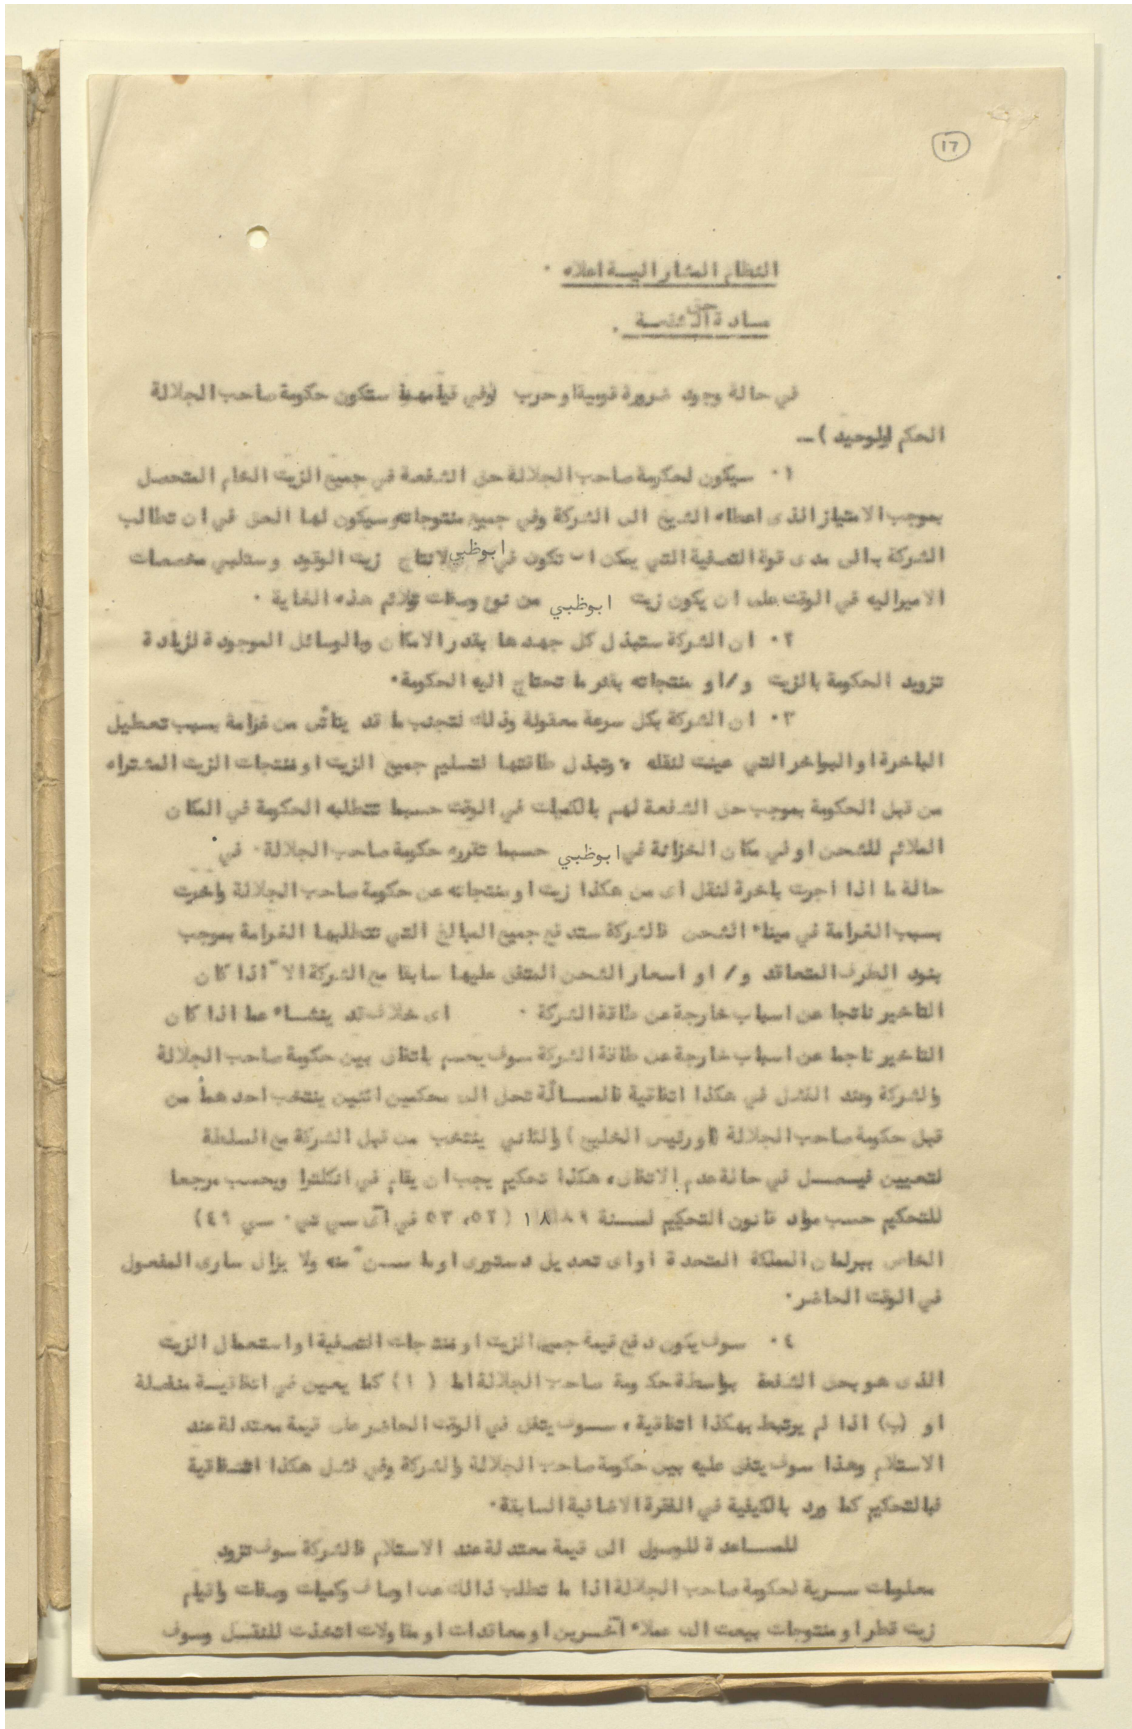 ١٦
النظام المشار اليـــه اعلاه ٠
مــادة حق الشفعــة ٠
في حالة وجود ضرورة قومية او حرب (وفي قيامهما ستكون حكومة صاحب الجلالة
الحكم الوحيد ) —
١٠ سيكون لحكومة صاحب الجلالة حق الشفعة في جميع الزيت الخام المتحصل
بموجب الامتياز الذى اعطاه الشيخ الى الشركة وفي جميع منتوجاته وسيكون لها الحق في ان تطالب
الشركة بالى مدى قوة التصفية التي يمكن ان تكون في ابوظبي لانتاج زيت الوقود وستلبي مخصصات
الاميراليه في الوقت على ان يكون زيت ابوظبي من نوع وصفات تلائم هذه الغاية ٠
٢٠ ان الشركة ستبذل كل جهدها بقدر الامكان وبالوسائل الموجودة لزيادة
تزويد الحكومة بالزيت و/او منتجاته بقدر ما تحتاج اليه الحكومة٠
٣٠ ان الشركة بكل سرعة معقولة وذلك لتجنب ما قد يتأتى من غرامة بسبب تعطيل
الباخرة او البواخر التي عينت لنقله ، وتبذل طاقتها لتسليم جميع الزيت او منتجات الزيت المشتراه
من قبل الحكومة بموجب حق الشفعة لهم بالكميات في الوقت حسبما تتطلبه الحكومة في المكان
الملائم للشحن او في مكان الخزانة في ابوظبي حسبما تقرره حكومة صاحب الجلالة ٠ في
حالة ما اذا اجرت باخرة لنقل اى من هكذا زيت او منتجاته عن حكومة صاحب الجلالة واخرت
بسبب الغرامة في ميناء الشحن فالشركة ستدفع جميع المبالغ التي تتطلبها الغرامة بموجب
بنود الطرف المتعاقد و/ او اسعار الشحن المتفق عليها سابقا مع الشركة الا اذا كان
التاخير ناتجا عن اسباب خارجة عن طاقة الشركة ٠ اى خلاف قد ينشـاء عما اذا كان
التاخير ناجما عن اسباب خارجة عن طاقة الشركة سوف يحسم باتفاق بين حكومة صاحب الجلالة
والشركة وعند الفشل في هكذا اتفاقية فالمسـألة تحل الى محكمين اثنين ينتخب احدهما من
قبل حكومة صاحب الجلالة (او رئيس الخليج ) والثاني ينتخب من قبل الشركة مع السلطة
لتعيين فيـصــل في حالة عدم الاتفاق ، هكذا تحكيم يجب ان يقام في انكلترا ويحسب مرجعا
للتحكيم حسب مواد قانون التحكيم لسـنة ١٨٨٩ (٥٢، ٥٣ في آى سي تي٠ سي ٤٩)
الخاص ببرلمان المملكة المتحدة او اى تعديل دستورى او ما سـن منه ولا يزال سارى المفعول
في الوقت الحاضر٠
٤٠ سوف يكون دفع قيمة جميع الزيت او منتجات التصفية او استعمال الزيت
الذى هو بحق الشفعة بواسطة حكومة صاحب الجلالة اما (١) كما يعين في اتفاقيـة منفصلة
او (ب) اذا لم يرتبط بهكذا اتفاقية ، ســوف يتفق في الوقت الحاضر على قيمة معتدلة عند
الاستلام وهذا سوف يتفق عليه بين حكومة صاحب الجلالة والشركة وفي فشل هكذا اتفـاقية
فبالتحكيم كما ورد بالكيفية في الفقرة الاضافية السابقة٠
للمســاعدة للوصول الى قيمة معتدلة عند الاستلام فالشركة سوف تزود
معلومات سـرية لحكومة صاحب الجلالة اذا ما تطلب ذالك عن اوصاف وكميات وصفات واقيام
زيت قطر او منتوجات بيعت الى عملاء آخـرين او معاقدات او مقاولات اتخذت للنقــل وسوف